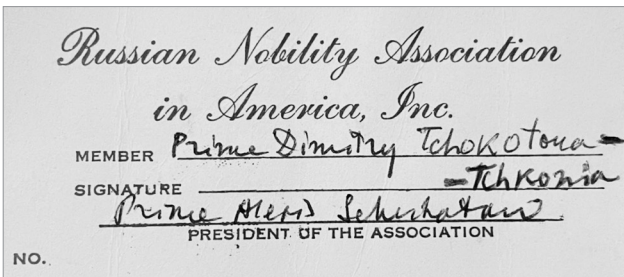 Russian Nobility Association
in America, Inc.
MEMBER Prince Dimitry Tchokotoua-
SIGNATURE -Tchkonia
Prince Alexis Scherbatow
PRESIDENT OF THE ASSOCIATION
NO.